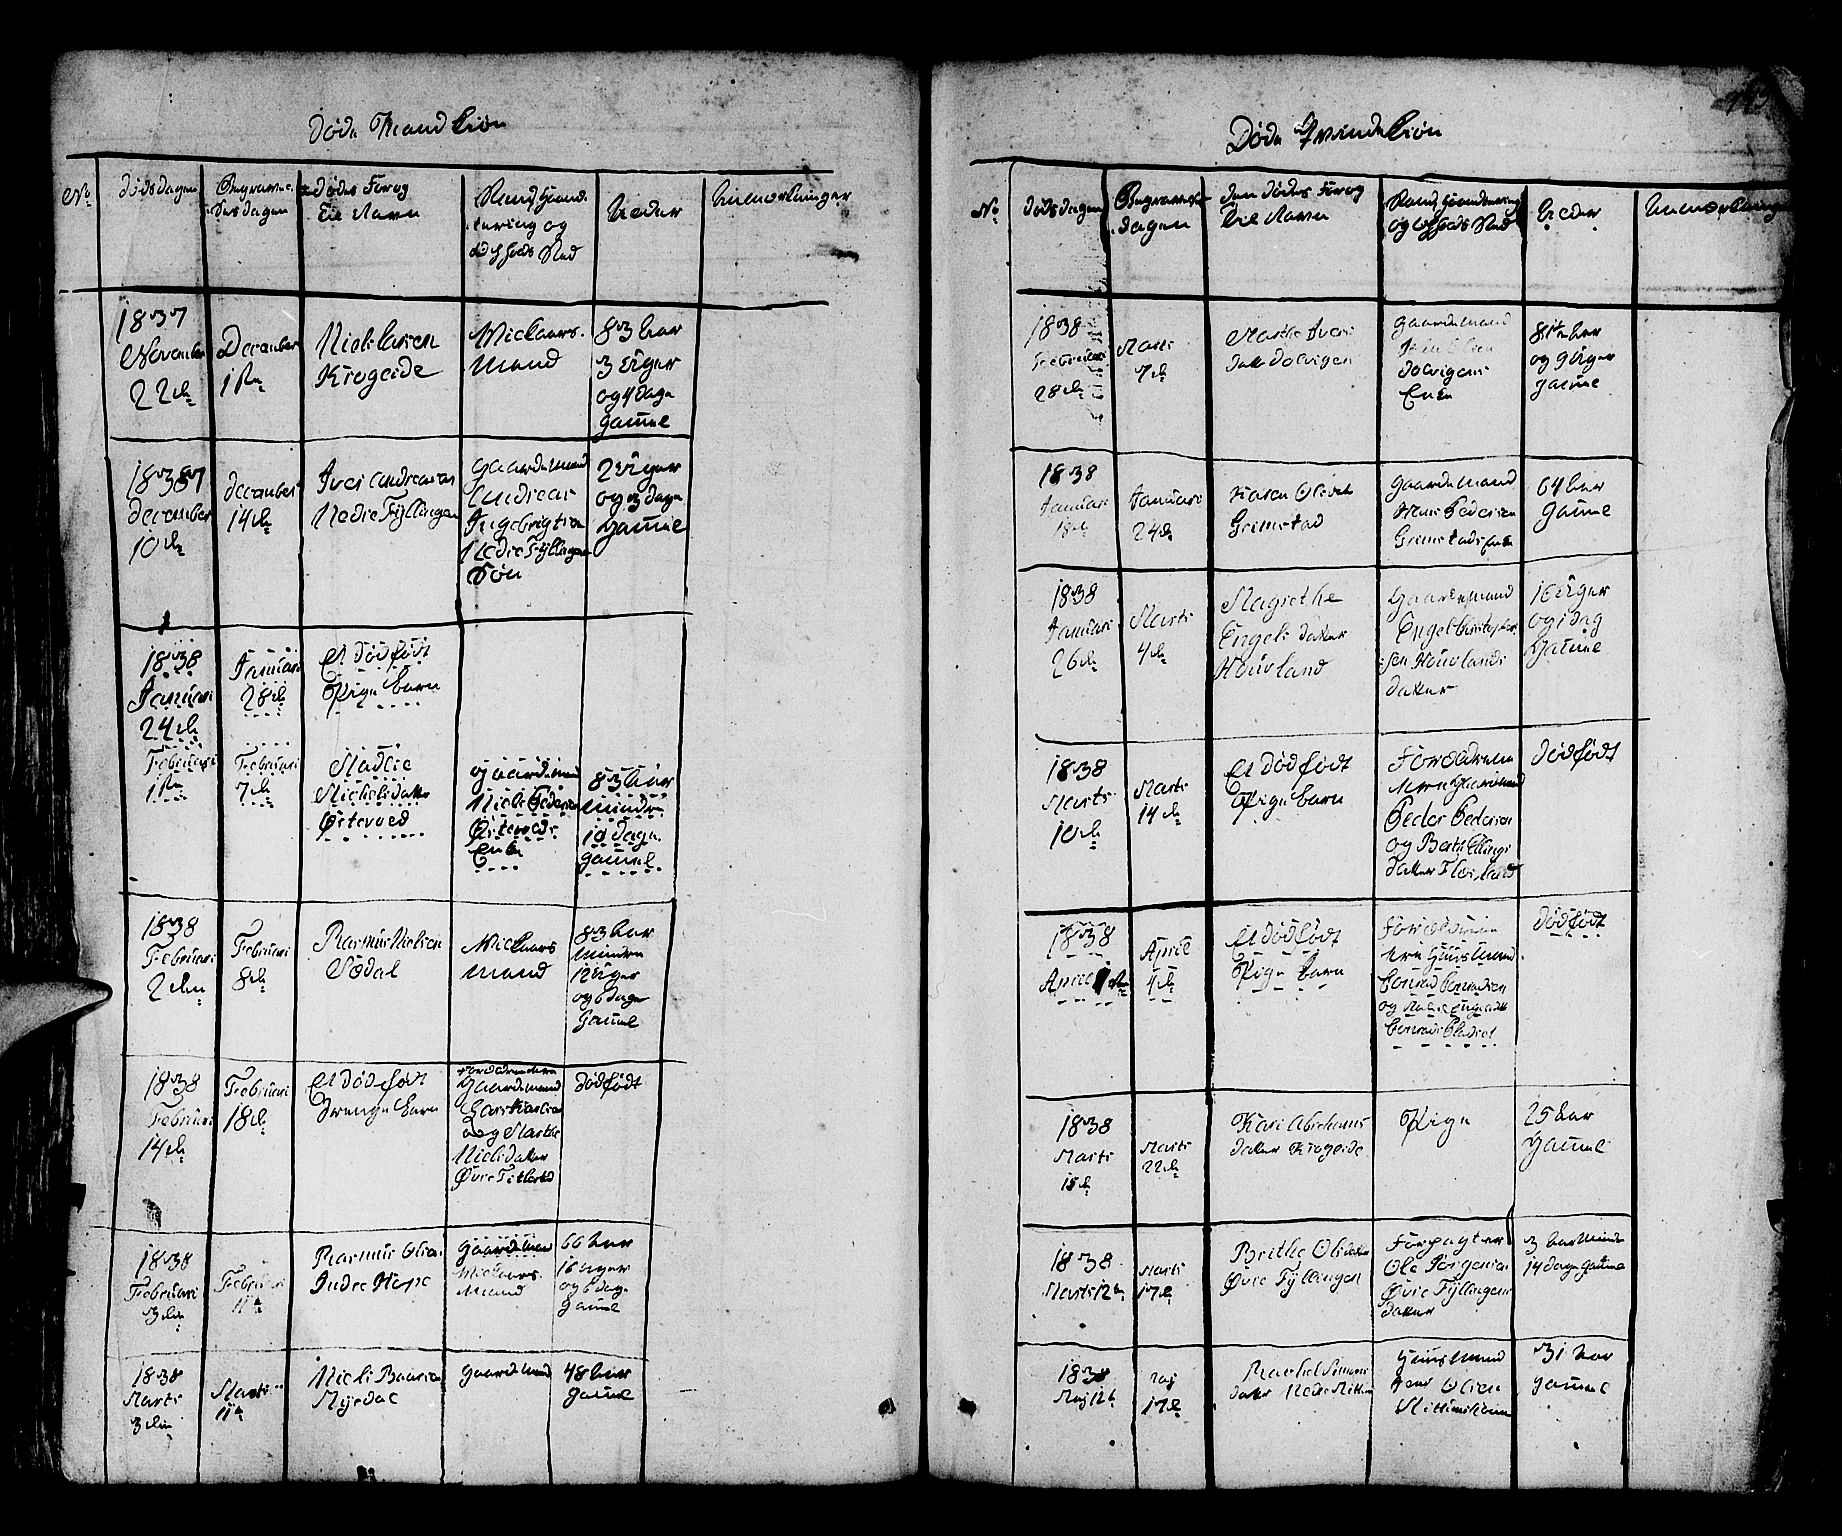 Døde Mand Kiøn
No
Døds dagen
Begravel-
ses dagen
Dødes For og
Til Navn
Rang Haand-
tering og
Opholds Sted
Alder
Anmærkninger
1837
November
22de
December
1ste
Niels Larsen
Krogeide
Vielaars-
mand
83 aar
3 Uger
og 4 dage
gamel
1837
December
10de
December
14de
Iver Andreasen
Nedre Fyllingen
Gaardemand
Andreas
Ingebrigtsen
Nedre Fyllingen
Søn
2 Uger
og 3 dage
Gamel
1838
Januari
24de
Januari
28de
Et Dødfødt
Pige barn
Februari
1ste
Februari
7de
Madlie
Nielsdatter
Østevoed
gaardemand
Niels Pedersen
Østevoeds
Enke
83 aar
mindre
10 dage
gamel
1838
Februari
2den
Februari
8de
Rasmus Nielsen
Sødal
Vielaars
mand
83 aar
mindre
12 Uger
og 6 dage
Gamel
1838
Februari
14de
Februari
18de
Et Dødfødt
Drenge barn
Forældrene ere
Gaardemand
Lars Larsen
og Marthe
Nielsdatter
Øvre Titlestad
Dødfødt
1838
Februari
3die
Februari
11te
Rasmus Olsen
Indre Hope
Gaardemand
Vielaars-
mand
66 aar
16 uger
og 6 dage
Gamel
1838
Marts
3die
Marts
11te
Niels Baarsen
Myrdal
Gaardemand
48 aar
Gamel
Døde Qvinde Kiøn
No
Døds dagen
Begravelses
dagen
Den Dødes For og
Til Navn
Rang Haandtering
og Opholds Sted
Alder
Anmærkninger
1838
Februari
28de
Marts
7de
Marthe Ivers
datter Dolvigen
Gaardemand
Dolvigens
Enke
81½ aar
og 9 Uger
gamel
1838
Januari
18de
Januari
24de
Karen Olsdatter
Grimstad
Gaardemand
Hans Pedersen
Grimstads Enke
64 aar
Gamel
1838
Januari
26de
Marts
4de
Magrethe
Engels datter
Houvland
Gaardemand
Engel Christophers-
sen Houvlands
datter
16 Uger
og 1 dag
Gamel
1838
Marts
10de
Marts
14de
Et Dødfødt
Pige barn
Forældrene
ere Gaardemand
Peder Pedersen
og Berthe Ellings
datter Flæsland
Dødfødt
1838
April 1ste
April
4de
Et Dødfødt
Pige barn
Forældrene
ere Huusmand
Conrad Conradsen
Dødfødt
1838
Marts
15de
Marts
22de
Kari Abrahams
datter Krogeide
Pige
25 aar
Gamel
1838
Marts 12te
Marts
17de
Brithe Olsdatter
Øvre Fyllingen
Forpagter
Ole Jørgensen
Øvre Fyllingens
datter
3 aar mindre
14 dage Gamel
1838
Maj 12te
Maj
17de
Rachel Simons
datter Nedre
Huusmand
Olsen
31 aar
gamel